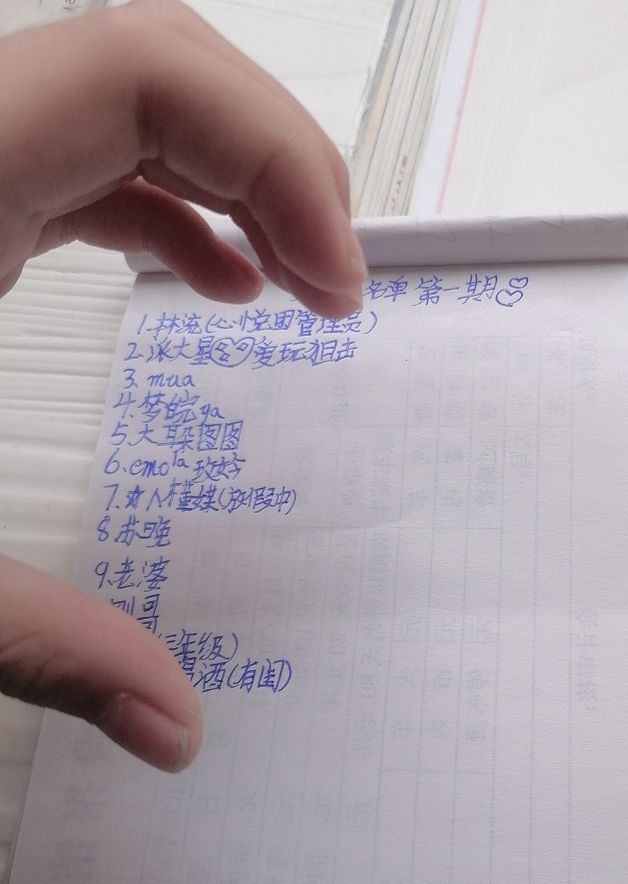 名单 第一期
1.林流(心悦团管理员)
2.派大星爱玩狙击
3.mua
4.梦皖ya
5.大耳朵图图
6.emo la 玫妗
7.木人槿媒(放假中)
8.苏晚
9.老婆
刚哥
哥
年级)
酒(有闺)